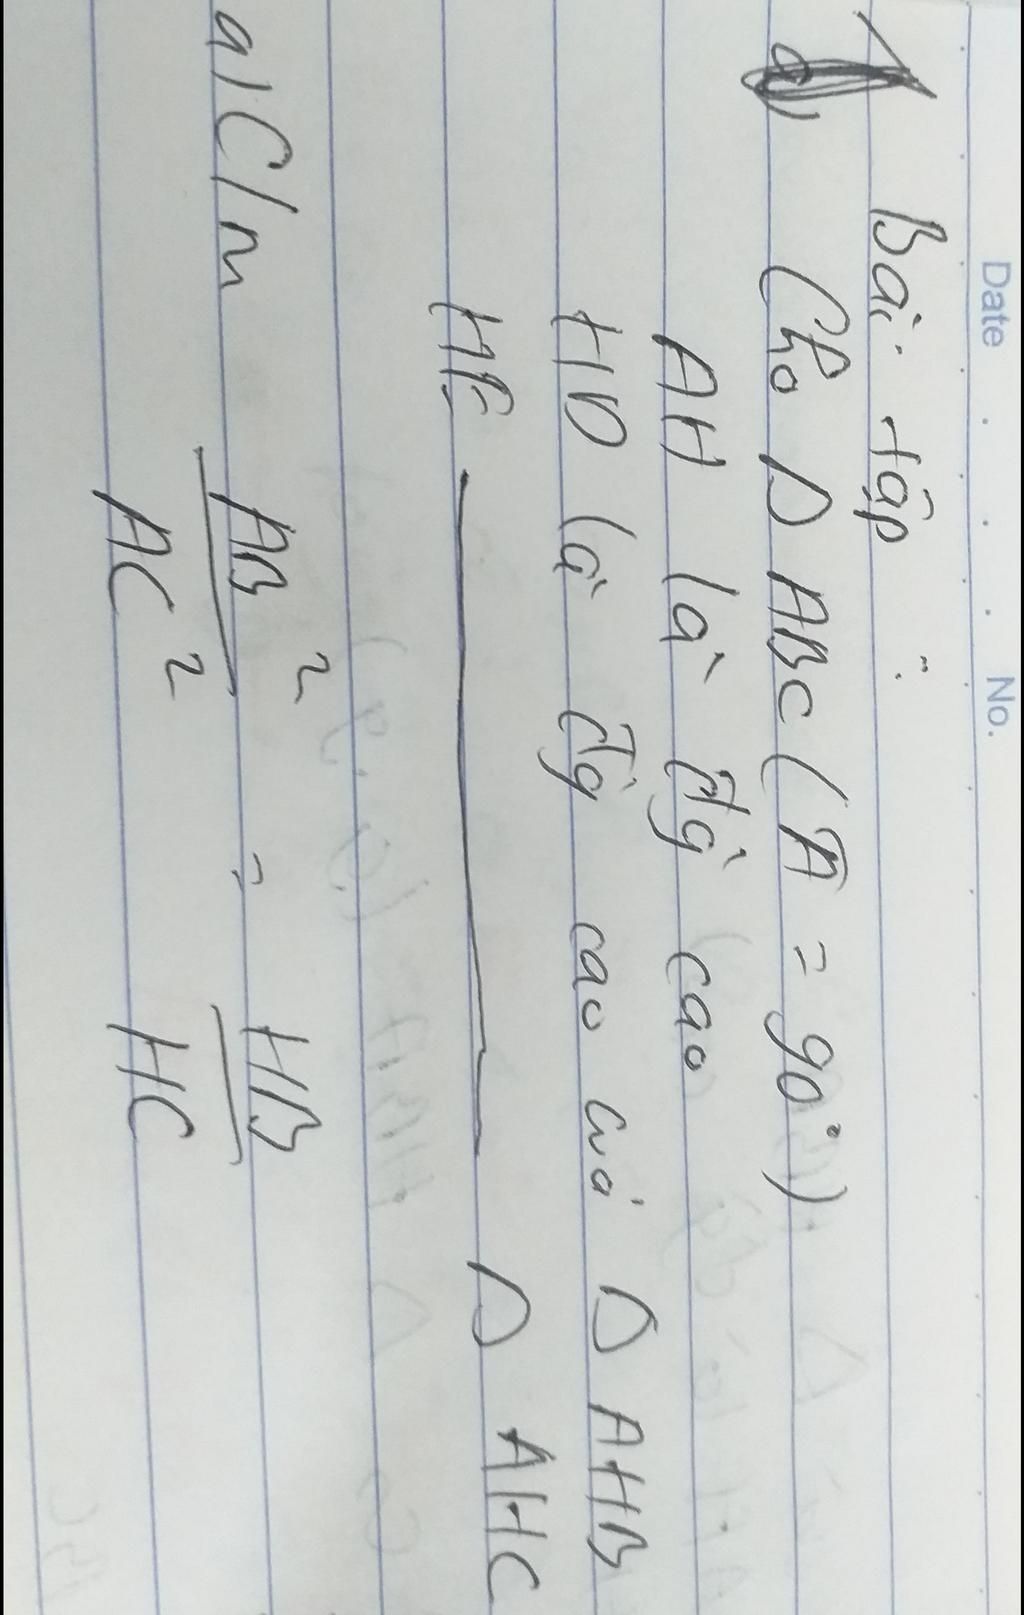 Date No.
Bài tập :
Cho Δ ABC (Â = 90°)
AH là đg cao
HD là đg cao của Δ AHB
HE ——— Δ AHC
a) C/m AB² = HB
AC² HC